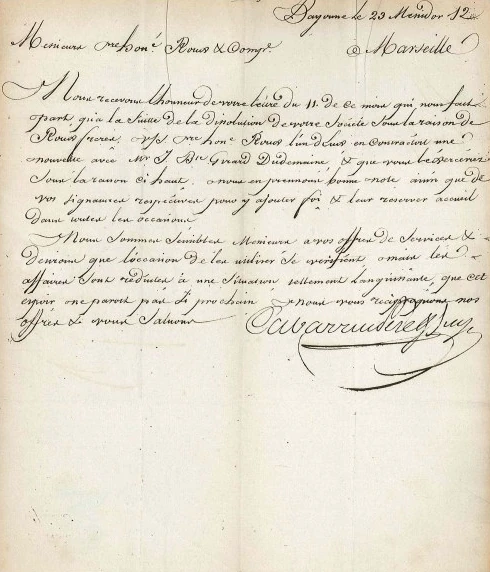 Bayonne le 23 Messidor 12
Messieurs honé Roux & Compe. a Marseille
Nous recevons l'honneur de votre lettre du 11 de ce mois qui nous fait
part qu'a la Suitte de la disolution de votre Societé sous la raison de
Roux freres, honé Roux l'un d'eux en contractoit une
nouvelle avec Mr J. Bte Girard Dudemaine, & que vous
sous la raison ci haut, nous en prennons bonne note ainsi que de
vos signatures respectives pour y ajouter foi & leur reserver accueil
dans toutes les occasions
Nous sommes sensibles Messieurs a vos offres de Services &
desirons que l'occasion de les utiliser se mais les
affaires sont réduites à une situation tellement languissante, que cet
espoir ne paroit pas si prochain nous vous reciproquons nos
offres & vous saluons